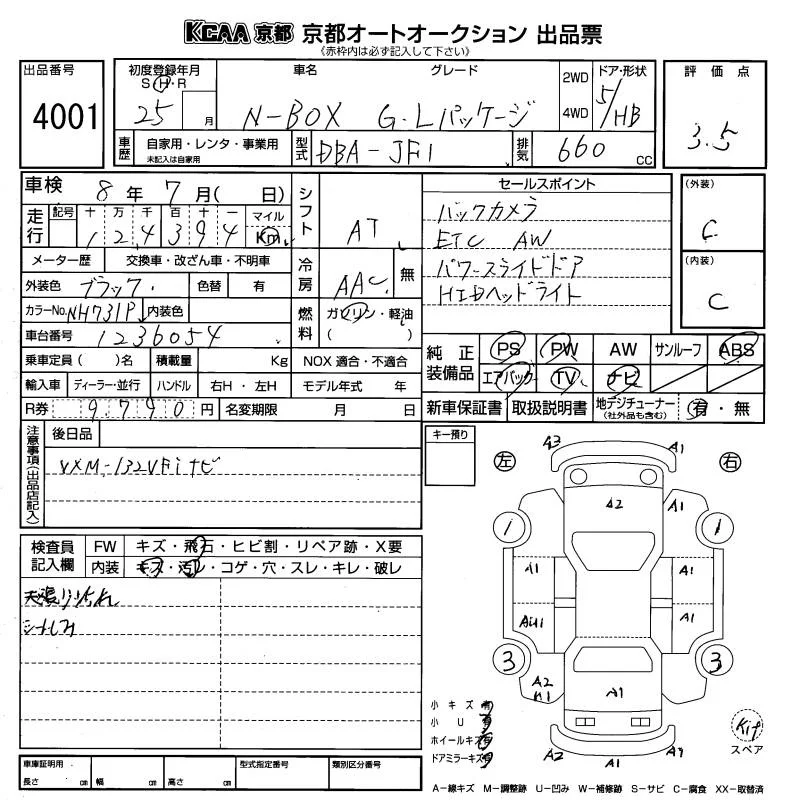 KCAA 京都 京都オートオークション 出品票
《赤枠内は必ず記入して下さい》
出品番号
4001
初度登録年月
S・H・R
25 月
車名 グレード
N-BOX G・Lパッケージ
2WD
4WD
ドア・形状
5/HB
評価点
3.5
車歴
自家用・レンタ・事業用
未記入は自家用
型式
DBA-JF1
排気
660 cc
車検 8年7月( 日)
走行
記号 十 万 千 百 十 一 マイル
1 2 4 3 9 4 Km
メーター歴 交換車・改ざん車・不明車
外装色 ブラック 色替 有
カラーNo. NH731P 内装色
車台番号 1236054
乗車定員( )名 積載量 Kg
輸入車 ディーラー・並行 ハンドル 右H・左H
R券 9,790円 名変期限 月 日
シフト
AT
冷房
AAC 無
燃料
ガソリン・軽油
( )
NOX 適合・不適合
モデル年式 年
セールスポイント
バックカメラ
ETC AW
パワースライドドア
HIDヘッドライト
(外装)
C
(内装)
C
純正装備品
PS PW AW サンルーフ ABS
エアバック TV ナビ
新車保証書 取扱説明書 地デジチューナー(社外品も含む) 有・無
注意事項(出品店記入)
後日品
VXM-132VFiナビ
キー預り
検査員記入欄
FW キズ・飛石・ヒビ割・リペア跡・X要
内装 キズ・汚れ・コゲ・穴・スレ・キレ・破レ
左
右
A3
A1
A2
A1
1
1
A1
A1
AU1
A1
3
3
A2
A1
A2
A1
小キズ 有
小U 有
ホイールキズ 有
ドアミラーキズ 有
Kit
スペア
車庫証明用
長さ cm 幅 cm 高さ cm
型式指定番号 類別区分番号
A-線キズ M-調整跡 U-凹み W-補修跡 S-サビ C-腐食 XX-取替済